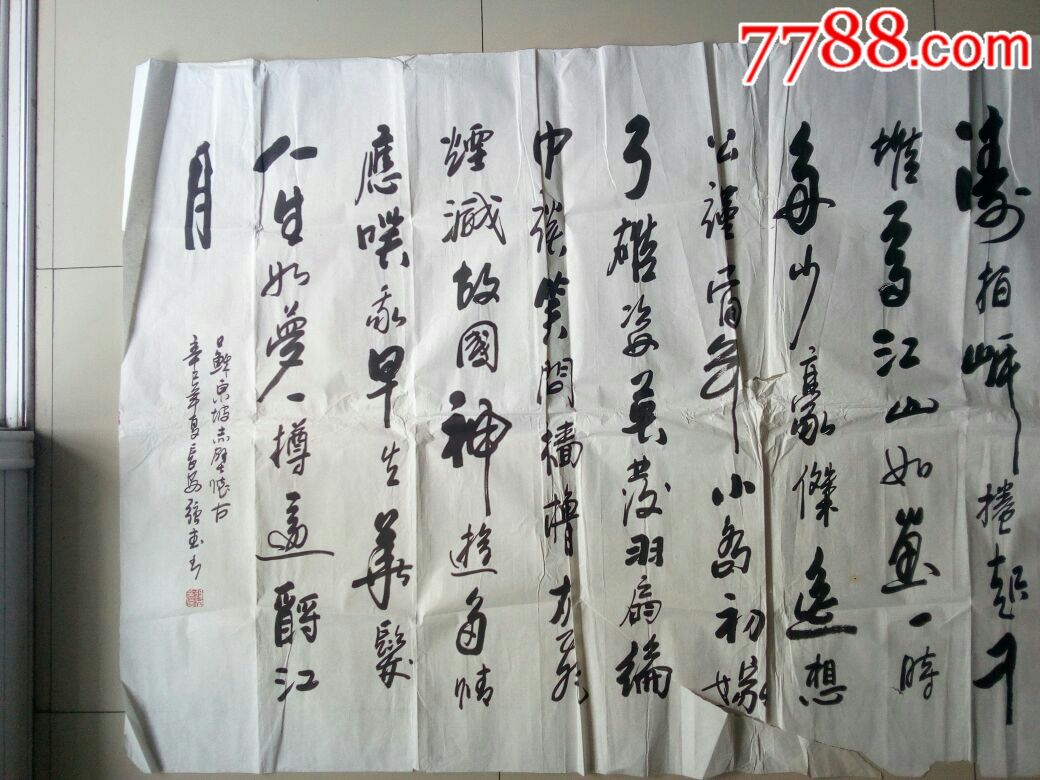 濤拍岸捲起千
堆雪江山如畫一時
多少豪傑遙想
公謹當年小喬初嫁
了雄姿英發羽扇綸
巾談笑間檣櫓灰飛
煙滅故國神遊多情
應噗我早生華髮
人生如夢一樽還酹江
月
蘇東坡赤壁懷古
辛巳年夏長安強書
7788.com